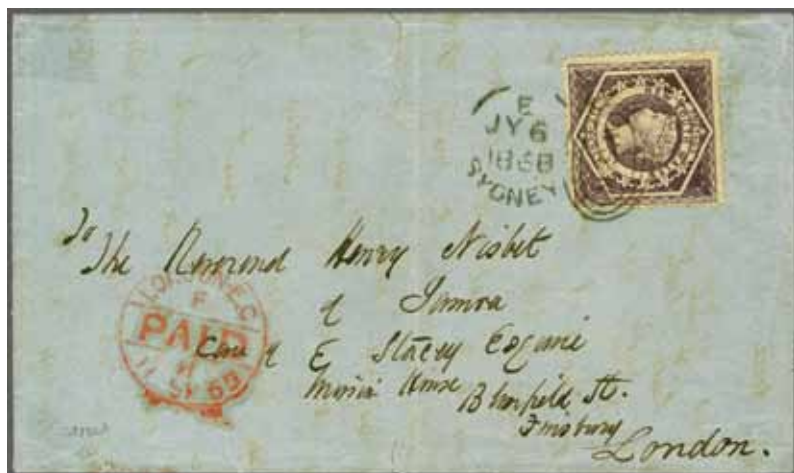 E
JY 6
1868
SYDNEY
To
The Reverend Henry Nisbet
of Samoa
Care of E Stacey Esquire
Mission House Blomfield St.
Finsbury
London.
LONDON.E.C
F
PAID